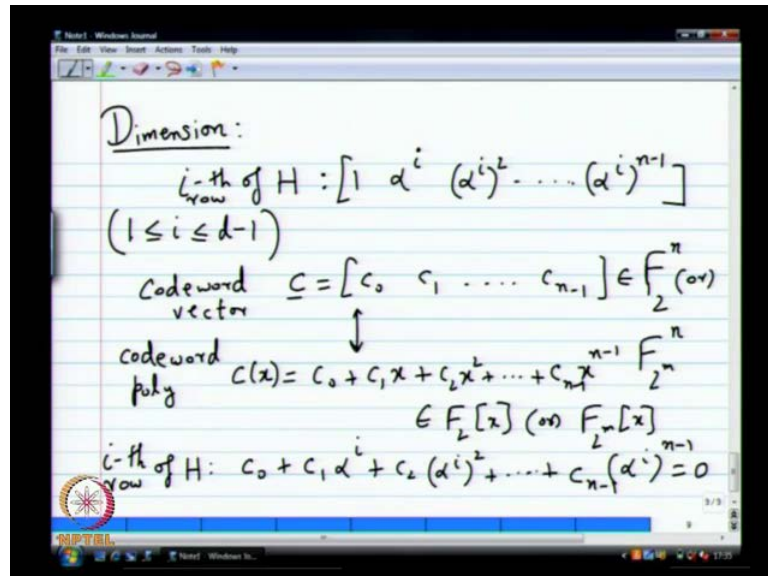 Note1 - Windows Journal
File Edit View Insert Actions Tools Help
Dimension:
i-th row of H : [1 α^i (α^i)^2 ..... (α^i)^{n-1}]
(1 ≤ i ≤ d-1)
codeword vector c = [c_0 c_1 .... c_{n-1}] ∈ F_2^n (or)
codeword poly c(x) = c_0 + c_1 x + c_2 x^2 + ... + c_{n-1} x^{n-1} F_{2^m}^n
∈ F_2[x] (or) F_{2^m}[x]
i-th row of H: c_0 + c_1 α^i + c_2 (α^i)^2 + ..... + c_{n-1} (α^i)^{n-1} = 0
3/3
9
NPTEL
Note1 - Windows Jo...
17:35